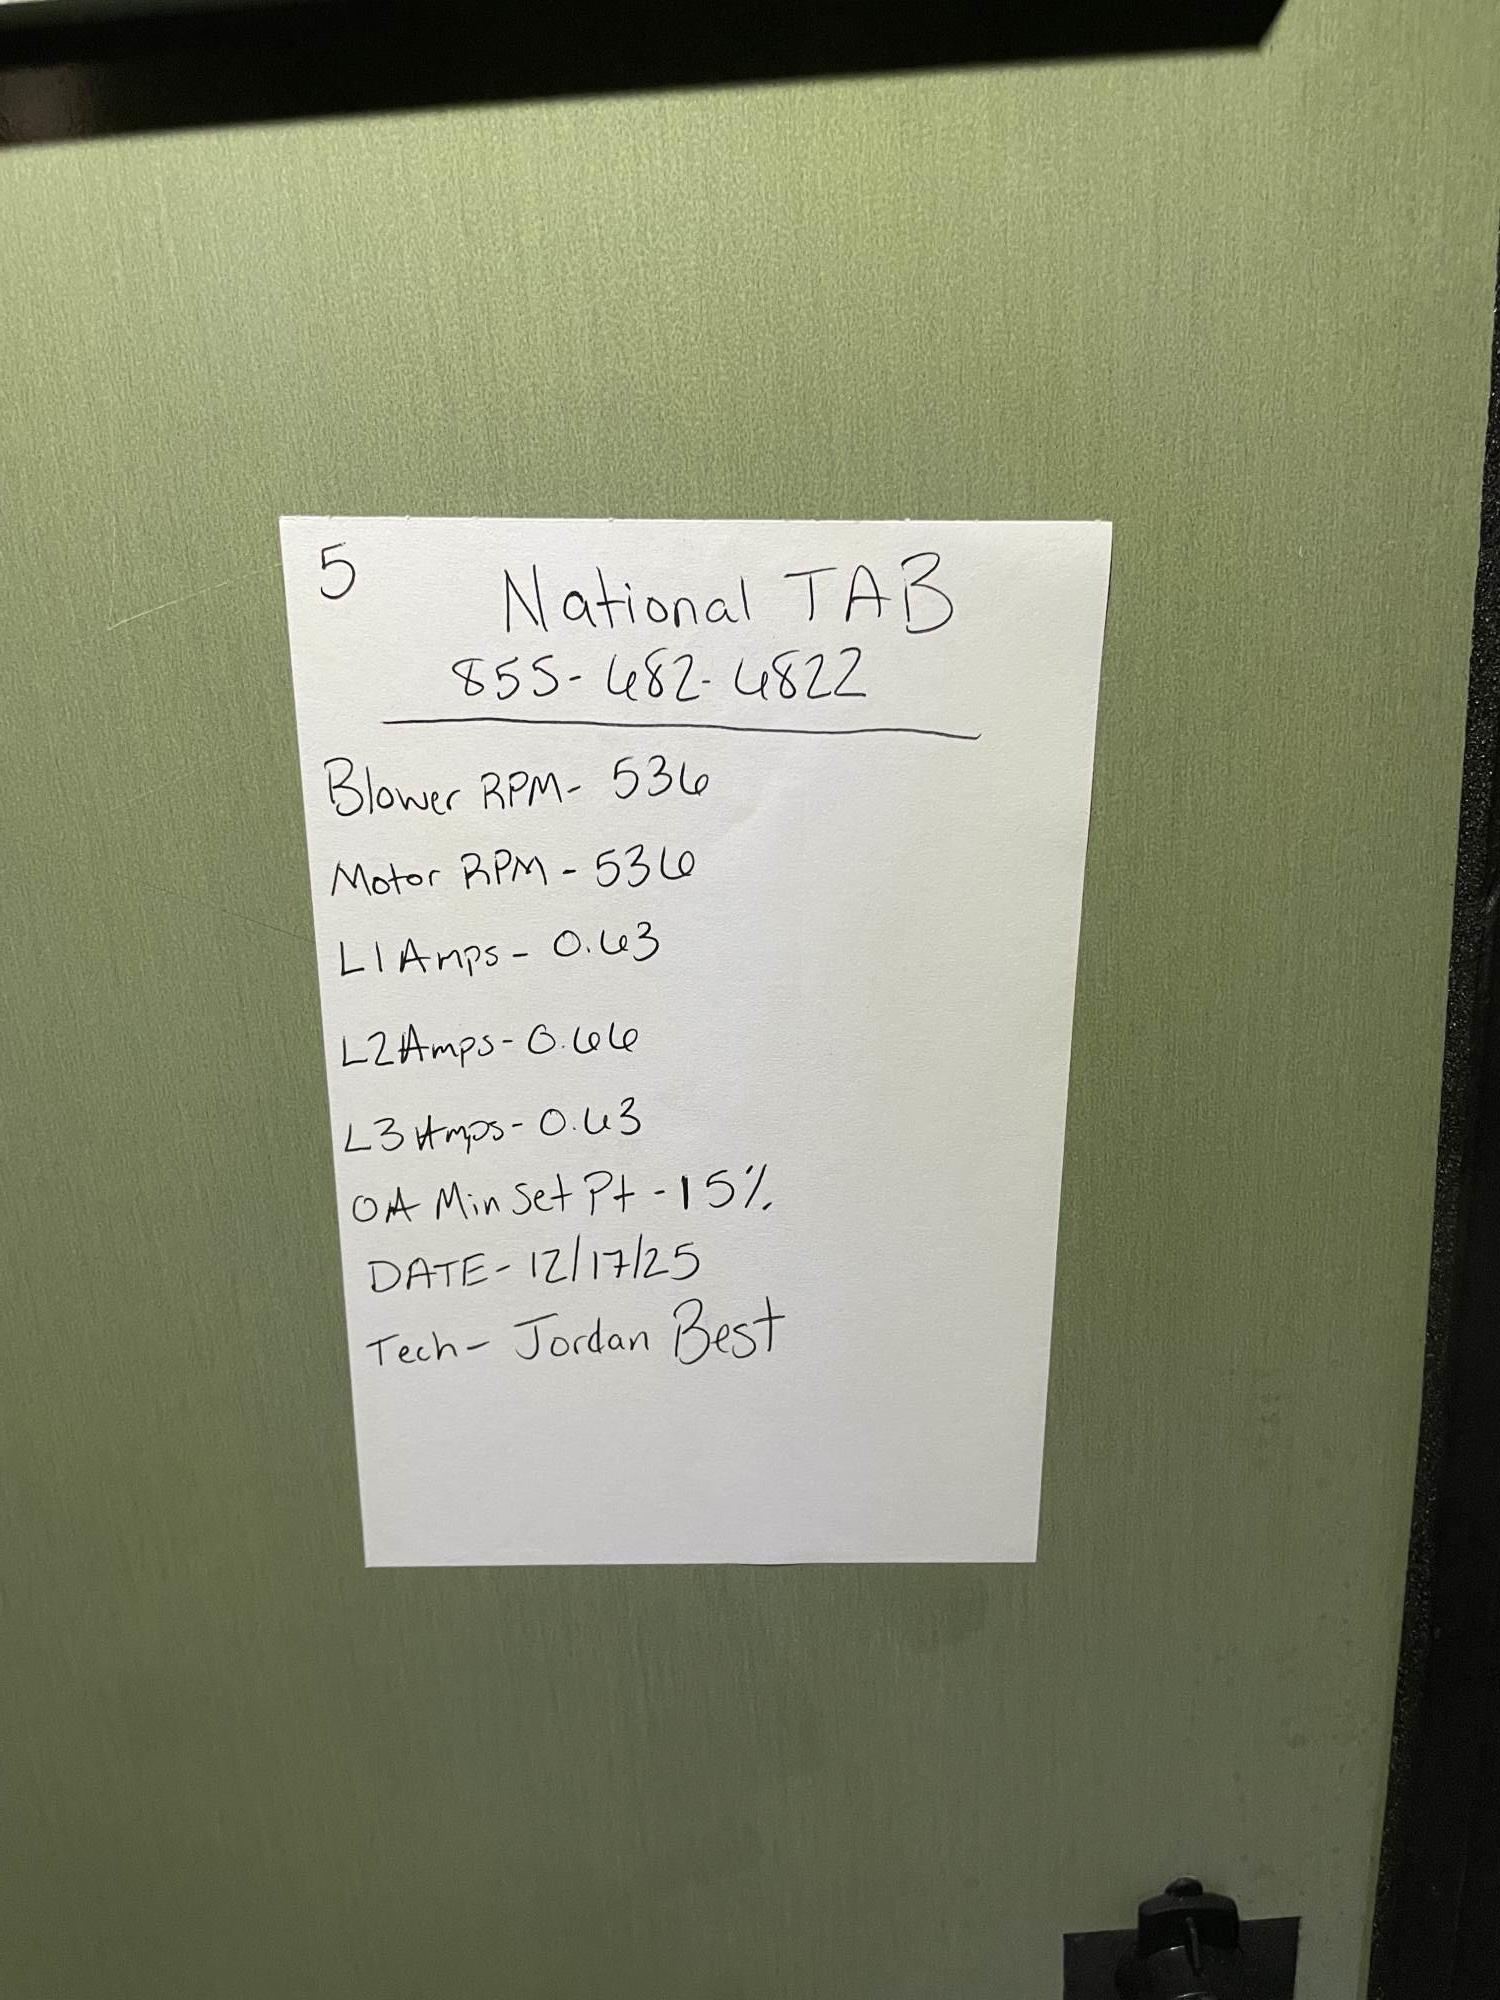 5
National TAB
855-482-4822
Blower RPM- 536
Motor RPM - 536
L1 Amps - 0.63
L2 Amps - 0.66
L3 Amps - 0.63
OA Min Set Pt - 15%
DATE - 12/17/25
Tech - Jordan Best